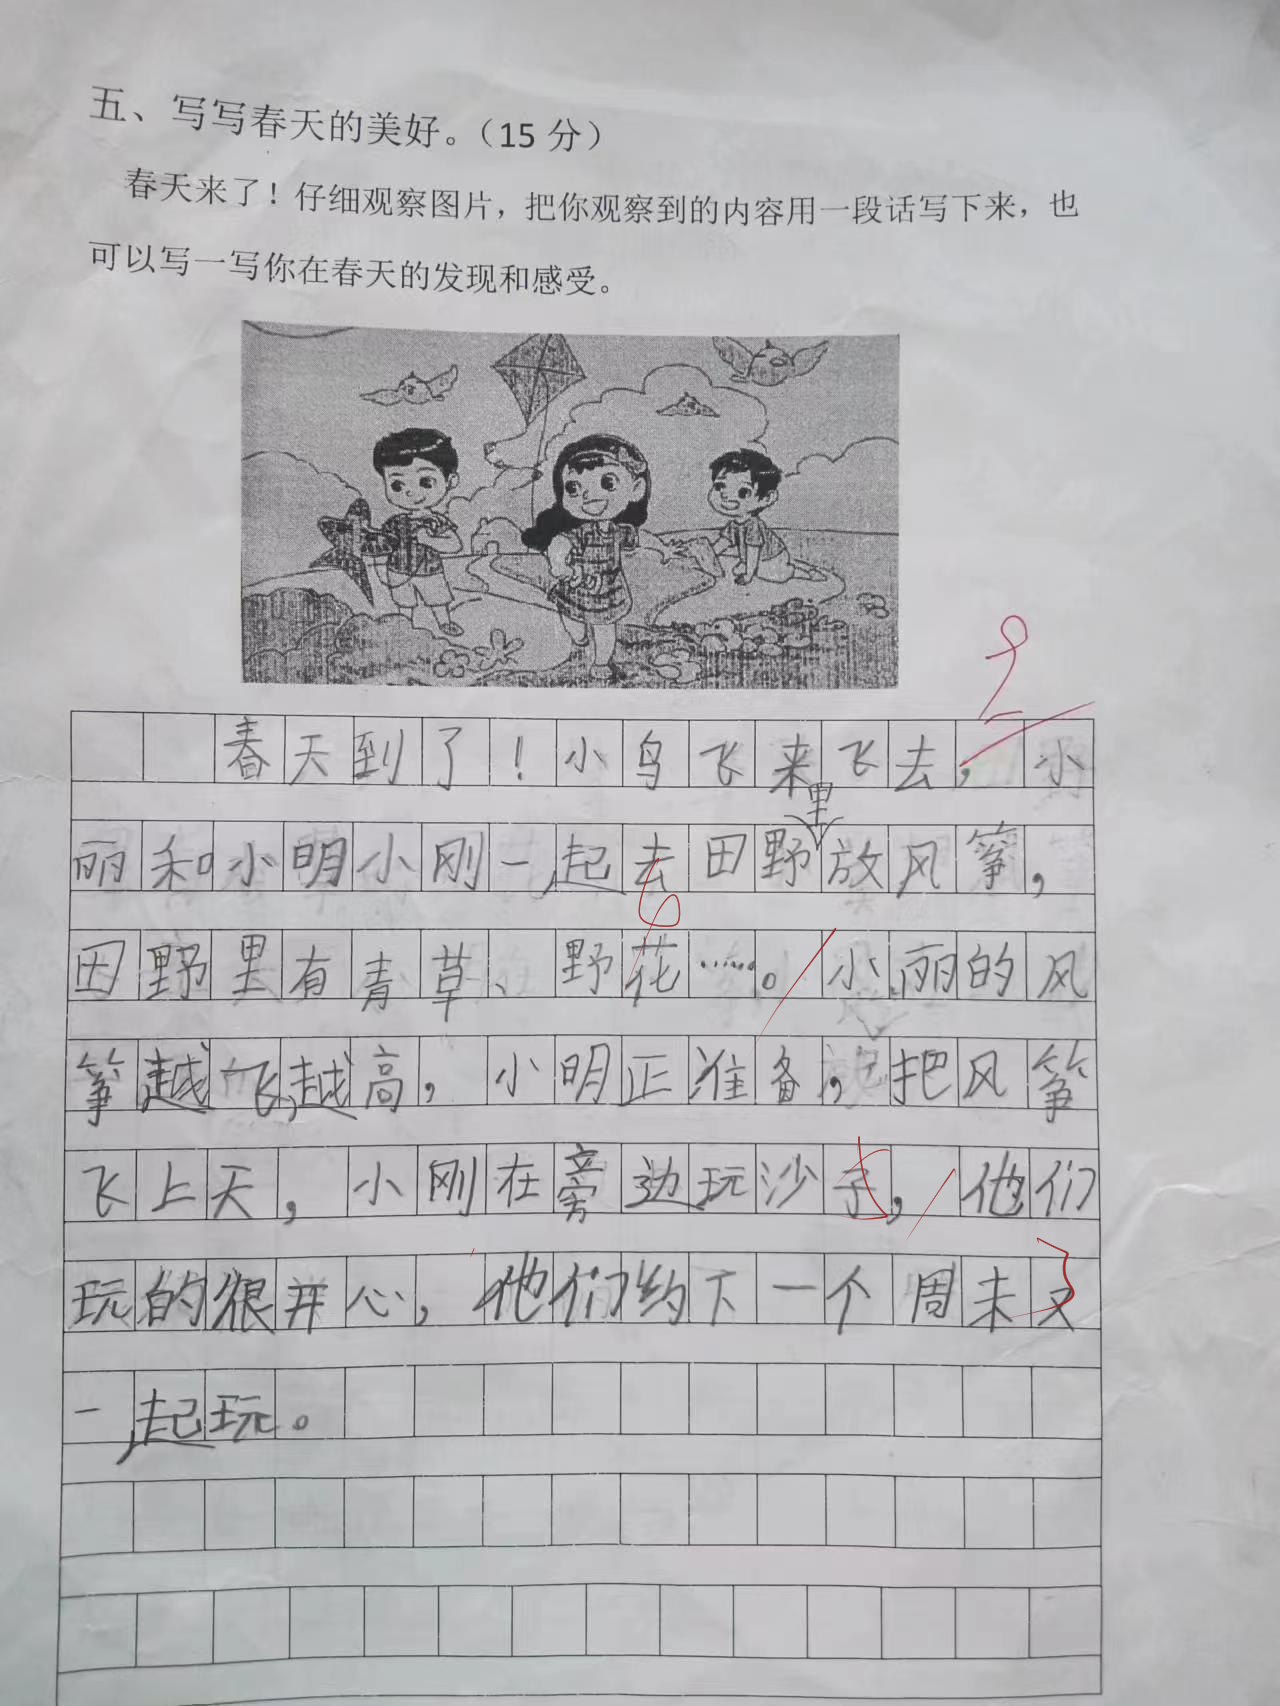 五、写写春天的美好。（15 分）
春天来了！仔细观察图片，把你观察到的内容用一段话写下来，也
可以写一写你在春天的发现和感受。
春天到了！小鸟飞来飞去，小
丽和小明小刚一起去田野里放风筝，
田野里有青草、野花……。小丽的风
筝越飞越高，小明正准备，把风筝
飞上天，小刚在旁边玩沙子，他们
玩的很开心，他们约下一个周末又
一起玩。